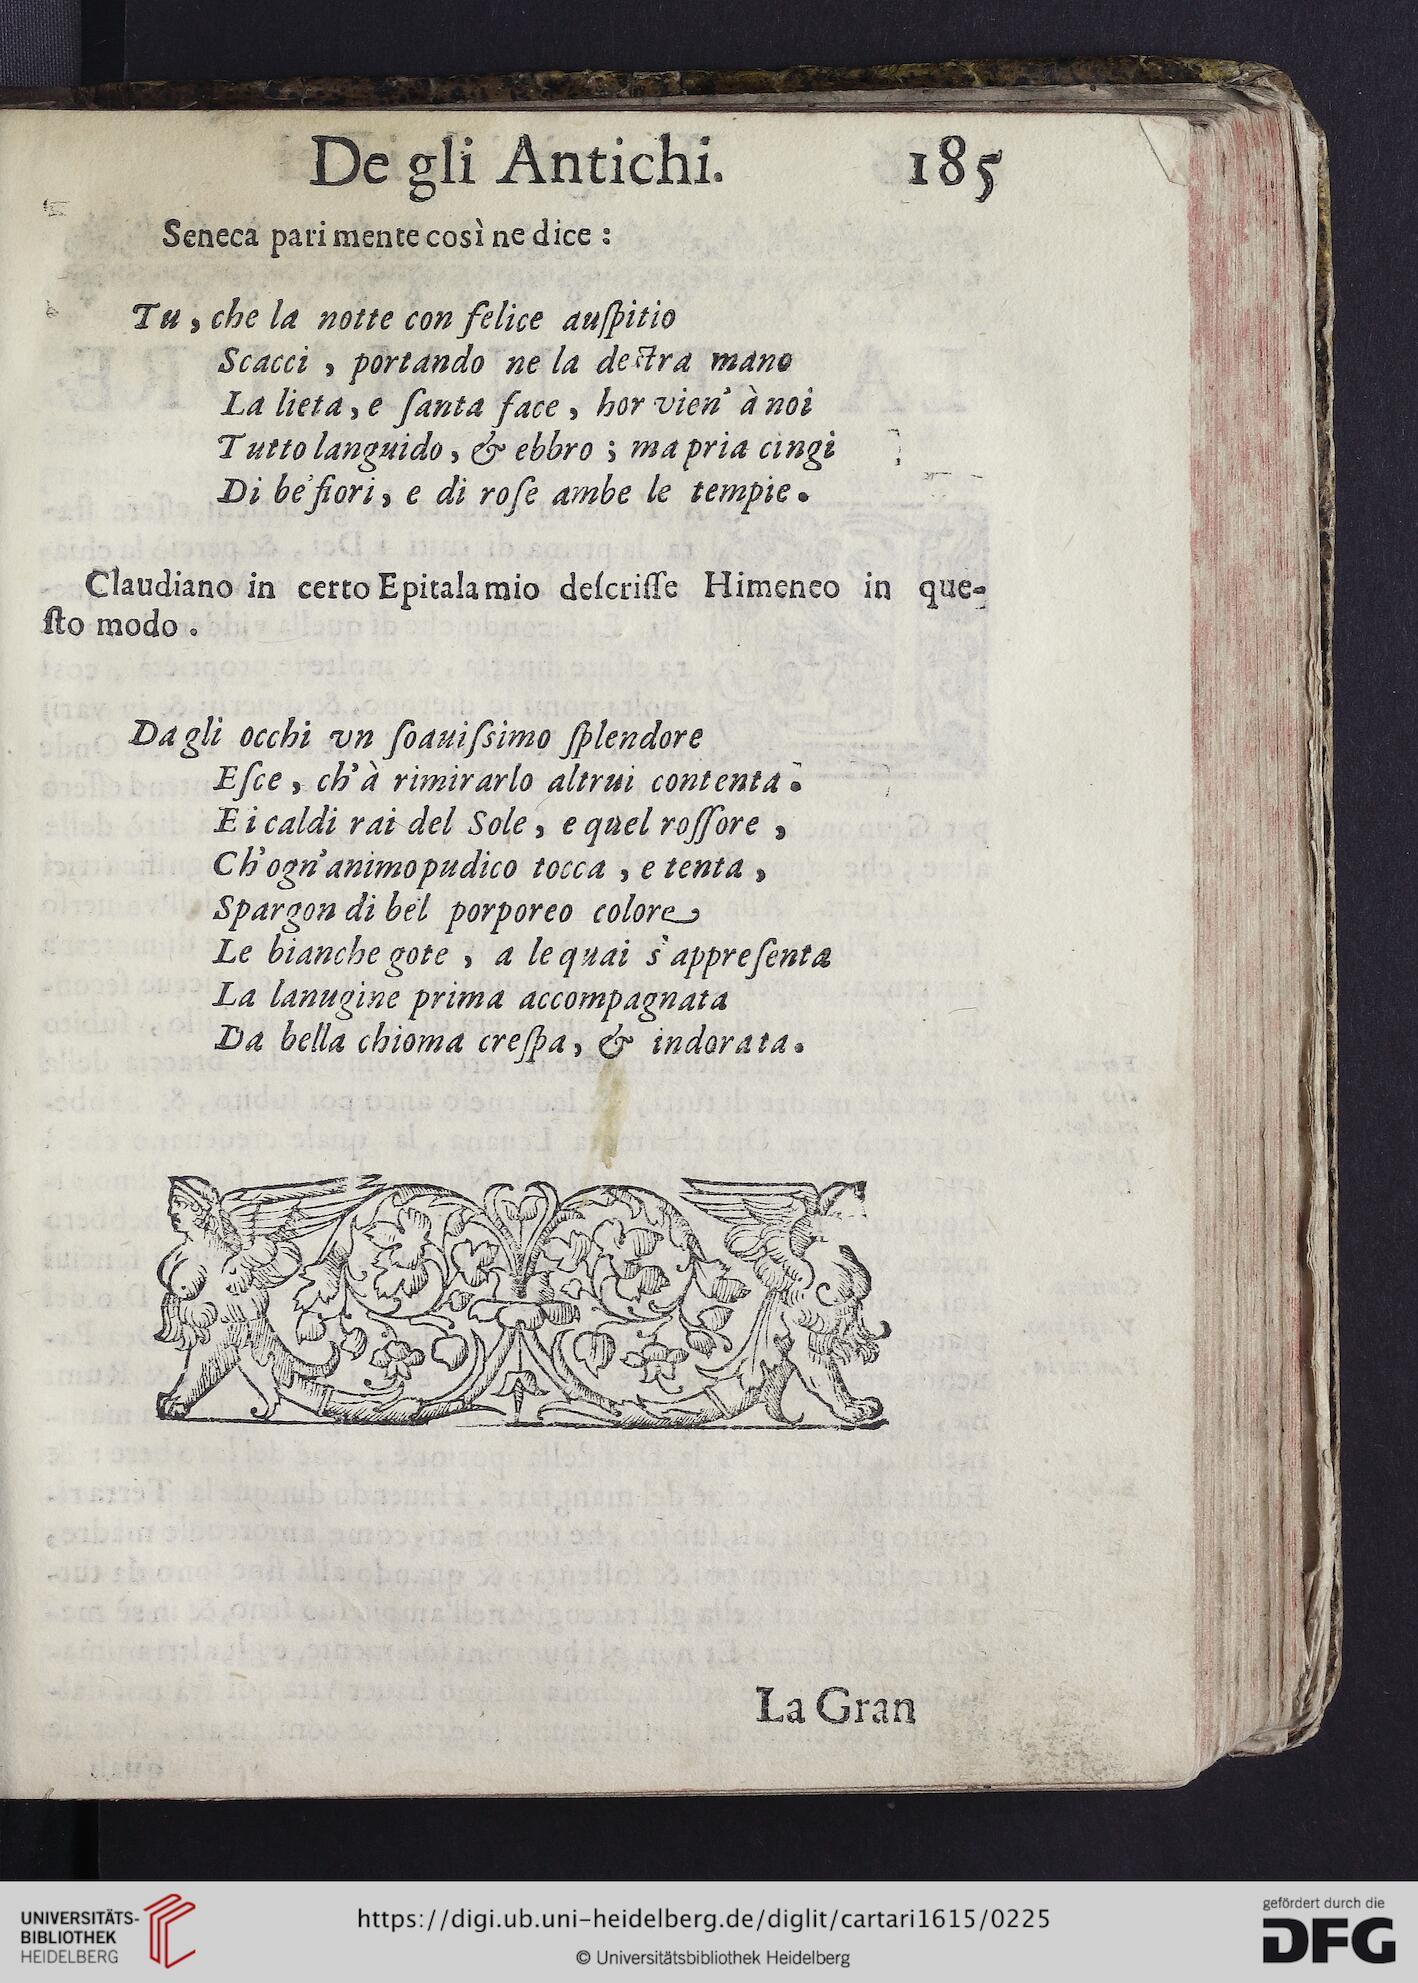 De gli Antichi. 185
Seneca parimente così ne dice :
Tu, che la notte con felice auſpitio
Scacci, portando ne la deſtra mano
La lieta, e ſanta face, hor vien' à noi
Tutto languido, & ebbro ; ma pria cingi
Di be' fiori, e di roſe ambe le tempie.
Claudiano in certo Epitalamio deſcriſſe Himeneo in que-
ſto modo.
Da gli occhi vn ſoauiſsimo ſplendore
Eſce, ch'à rimirarlo altrui contenta.
E i caldi rai del Sole, e quel roſſore,
Ch'ogn'animo pudico tocca, e tenta,
Spargon di bel porporeo colore
Le bianche gote, a le quai s'appreſenta
La lanugine prima accompagnata
Da bella chioma creſpa, & indorata.
La Gran
UNIVERSITÄTS-
BIBLIOTHEK
HEIDELBERG
https://digi.ub.uni-heidelberg.de/diglit/cartari1615/0225
© Universitätsbibliothek Heidelberg
gefördert durch die
DFG